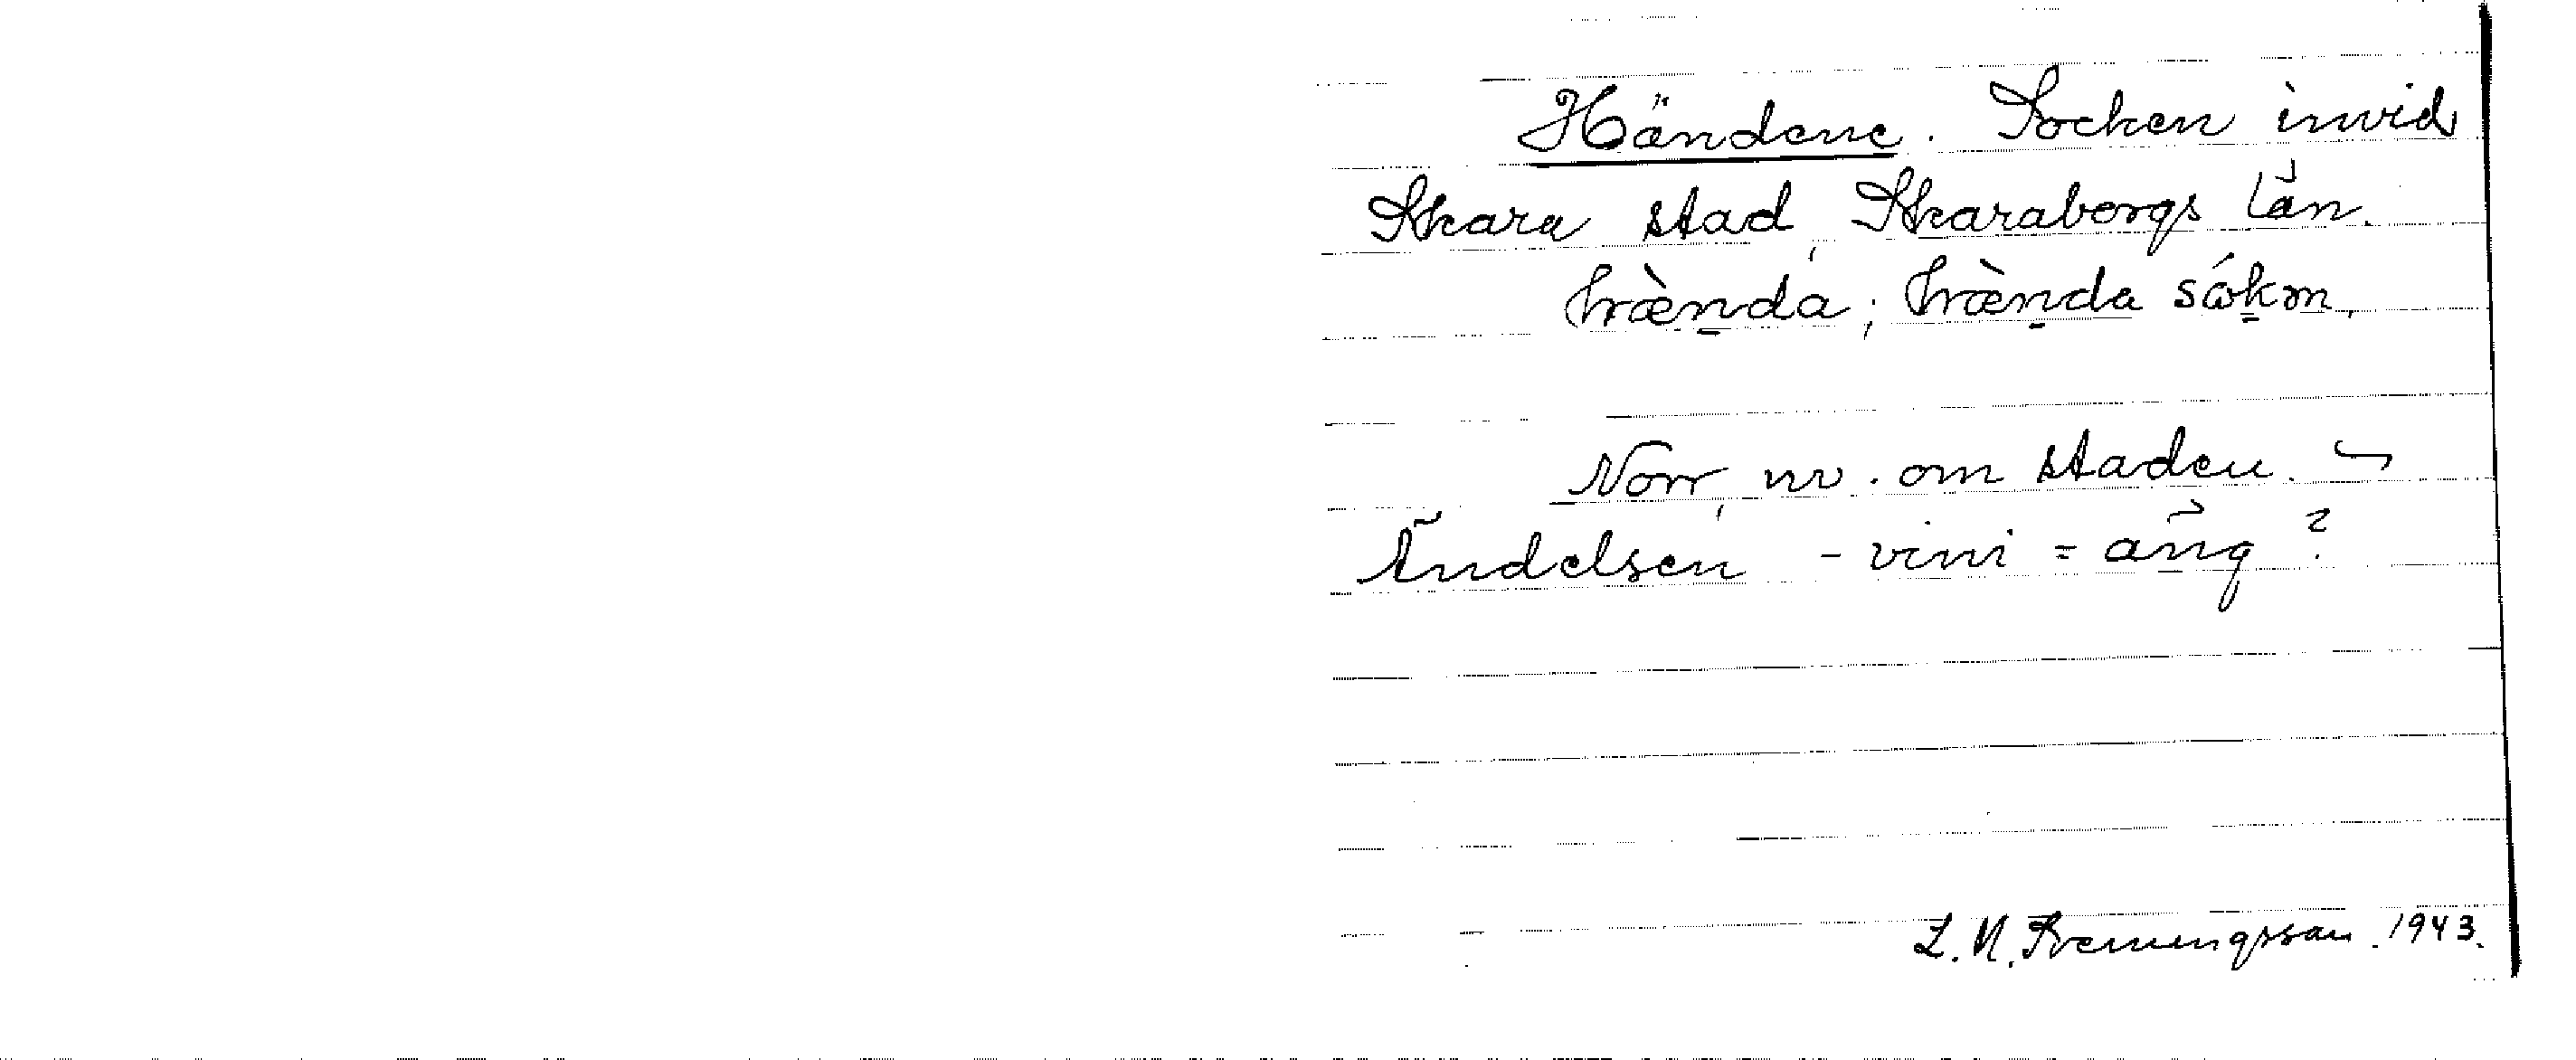 Händene. Socken invid
Skara stad, Skaraborgs län.
hrænda; hrænda såkm.
Norr, nv. om staden.
Ändelsen - vini = äng?
L. M. Svenungsson. 1943.